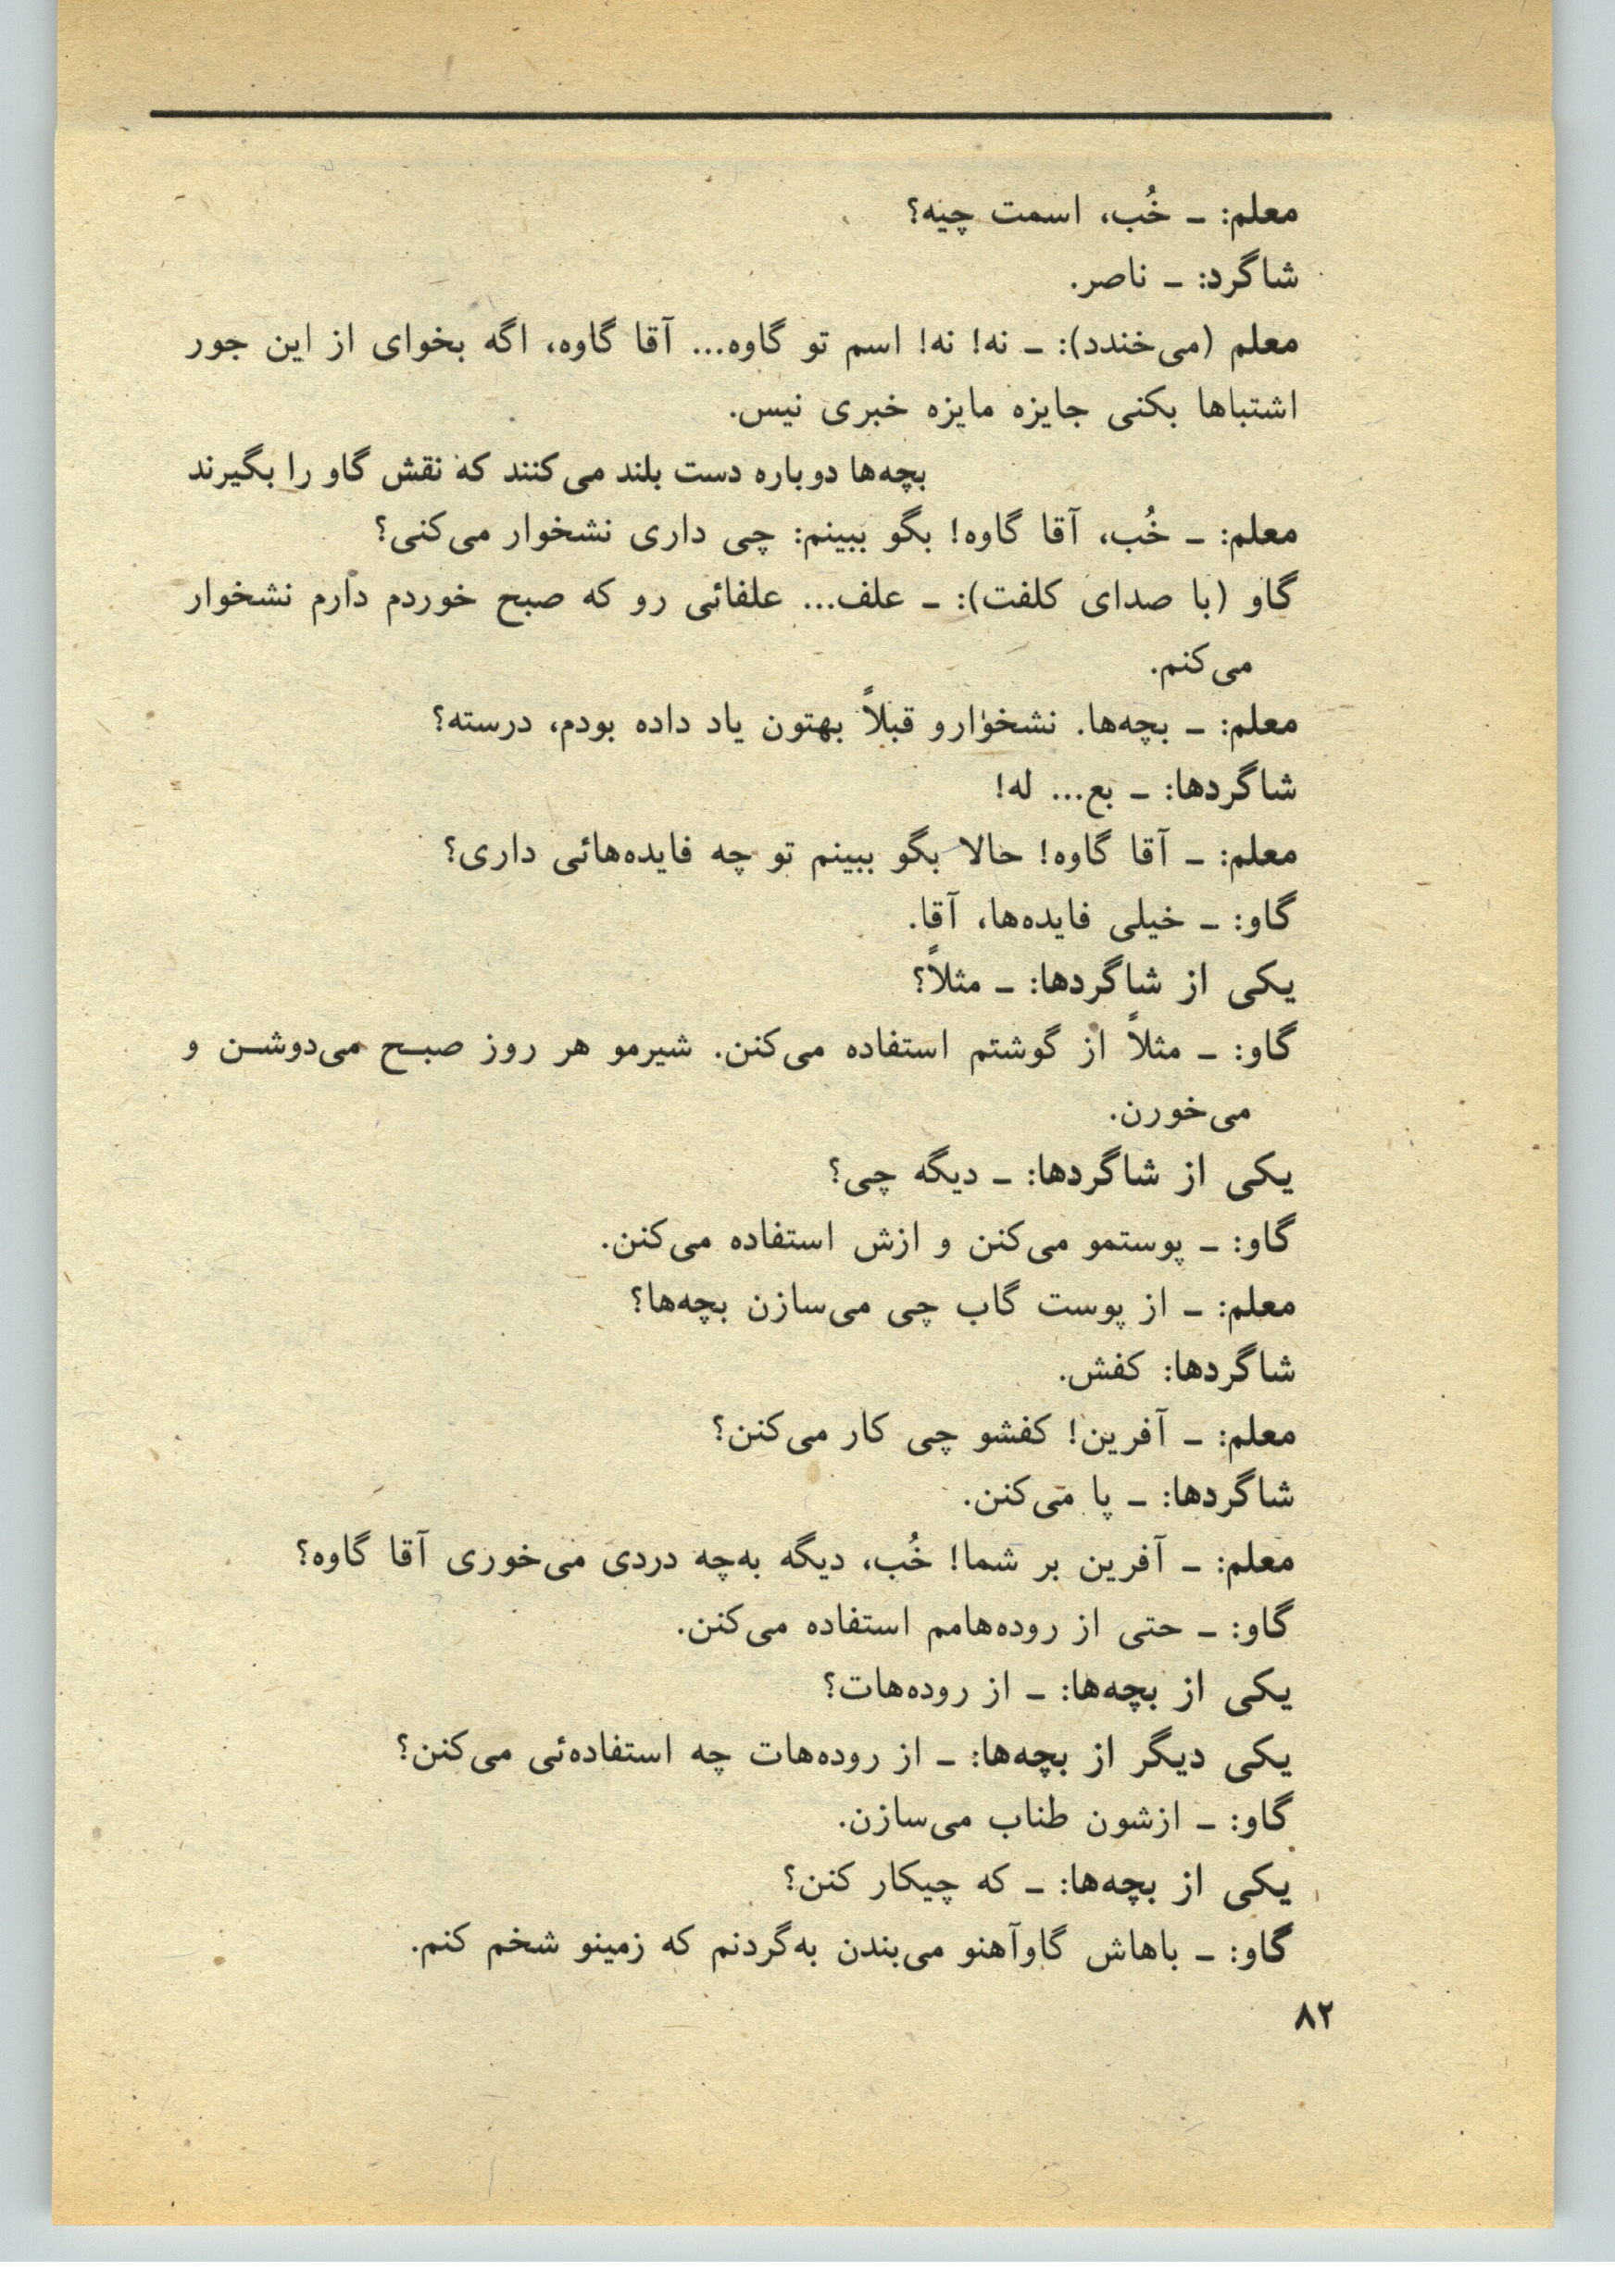 معلم: ــ خُب، اسمت چیه؟
شاگرد: ــ ناصر.
معلم (می‌خندد): ــ نه! نه! اسم تو گاوه... آقا گاوه، اگه بخوای از این جور
اشتباها بکنی جایزه مایزه خبری نیس.
بچه‌ها دوباره دست بلند می‌کنند که نقش گاو را بگیرند
معلم: ــ خُب، آقا گاوه! بگو ببینم: چی داری نشخوار می‌کنی؟
گاو (با صدای کلفت): ــ علف... علفائی رو که صبح خوردم دارم نشخوار
می‌کنم.
معلم: ــ بچه‌ها. نشخوارو قبلاً بهتون یاد داده بودم، درسته؟
شاگردها: ــ بع... له!
معلم: ــ آقا گاوه! حالا بگو ببینم تو چه فایده‌هائی داری؟
گاو: ــ خیلی فایده‌ها، آقا.
یکی از شاگردها: ــ مثلاً؟
گاو: ــ مثلاً از گوشتم استفاده می‌کنن. شیرمو هر روز صبح می‌دوشن و
می‌خورن.
یکی از شاگردها: ــ دیگه چی؟
گاو: ــ پوستمو می‌کنن و ازش استفاده می‌کنن.
معلم: ــ از پوست گاب چی می‌سازن بچه‌ها؟
شاگردها: کفش.
معلم: ــ آفرین! کفشو چی کار می‌کنن؟
شاگردها: ــ پا می‌کنن.
معلم: ــ آفرین بر شما! خُب، دیگه به‌چه دردی می‌خوری آقا گاوه؟
گاو: ــ حتی از روده‌هامم استفاده می‌کنن.
یکی از بچه‌ها: ــ از روده‌هات؟
یکی دیگر از بچه‌ها: ــ از روده‌هات چه استفاده‌ئی می‌کنن؟
گاو: ــ ازشون طناب می‌سازن.
یکی از بچه‌ها: ــ که چیکار کنن؟
گاو: ــ باهاش گاوآهنو می‌بندن به‌گردنم که زمینو شخم کنم.
۸۲